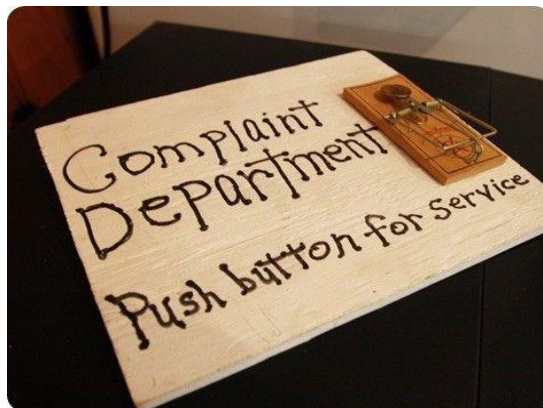 Complaint
Department
Push button for Service